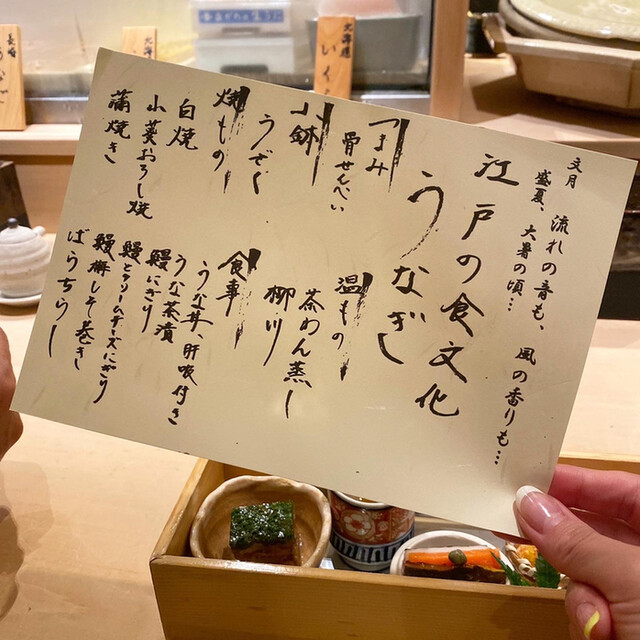 文月 流れの音も、風の香りも…
盛夏、大暑の頃…
江戸の食文化
うなぎ
つまみ
骨せんべい
小鉢
うざく
焼もの
白焼
山葵おろし焼
蒲焼き
温もの
茶わん蒸し
柳川
食事
うな丼、肝吸付き
うな茶漬
鰻にぎり
鰻とクリームチーズにぎり
鰻梅しそ巻き
ばらちらし
北海道
いくら
長崎